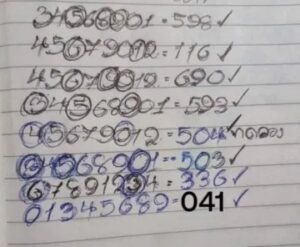 34568901=598✓
45679012=116✓
45679012=690✓
34568901=593✓
45679012=504✓
34568901=503✓
67891234=336✓
01345689=041✓